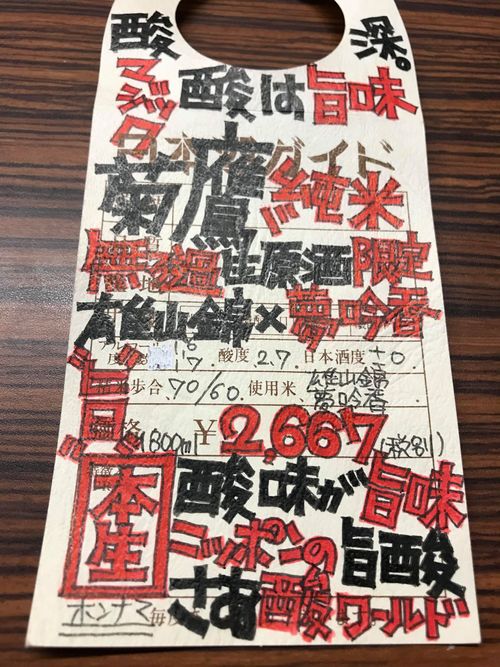 酸 深。
マジ 酸は旨味
日本酒ガイド
菊鷹 純米
無濾過生原酒 限定
雄山錦×夢吟香
アルコール度 17 酸度 2.7 日本酒度 ±0
精米歩合 70/60 使用米、雄山錦 夢吟香
価格 1800ml ¥2,667 (税別)
本生 酸味が旨味
ニッポンの旨酸
さあ酸ワールド
ホンナマ 毎度